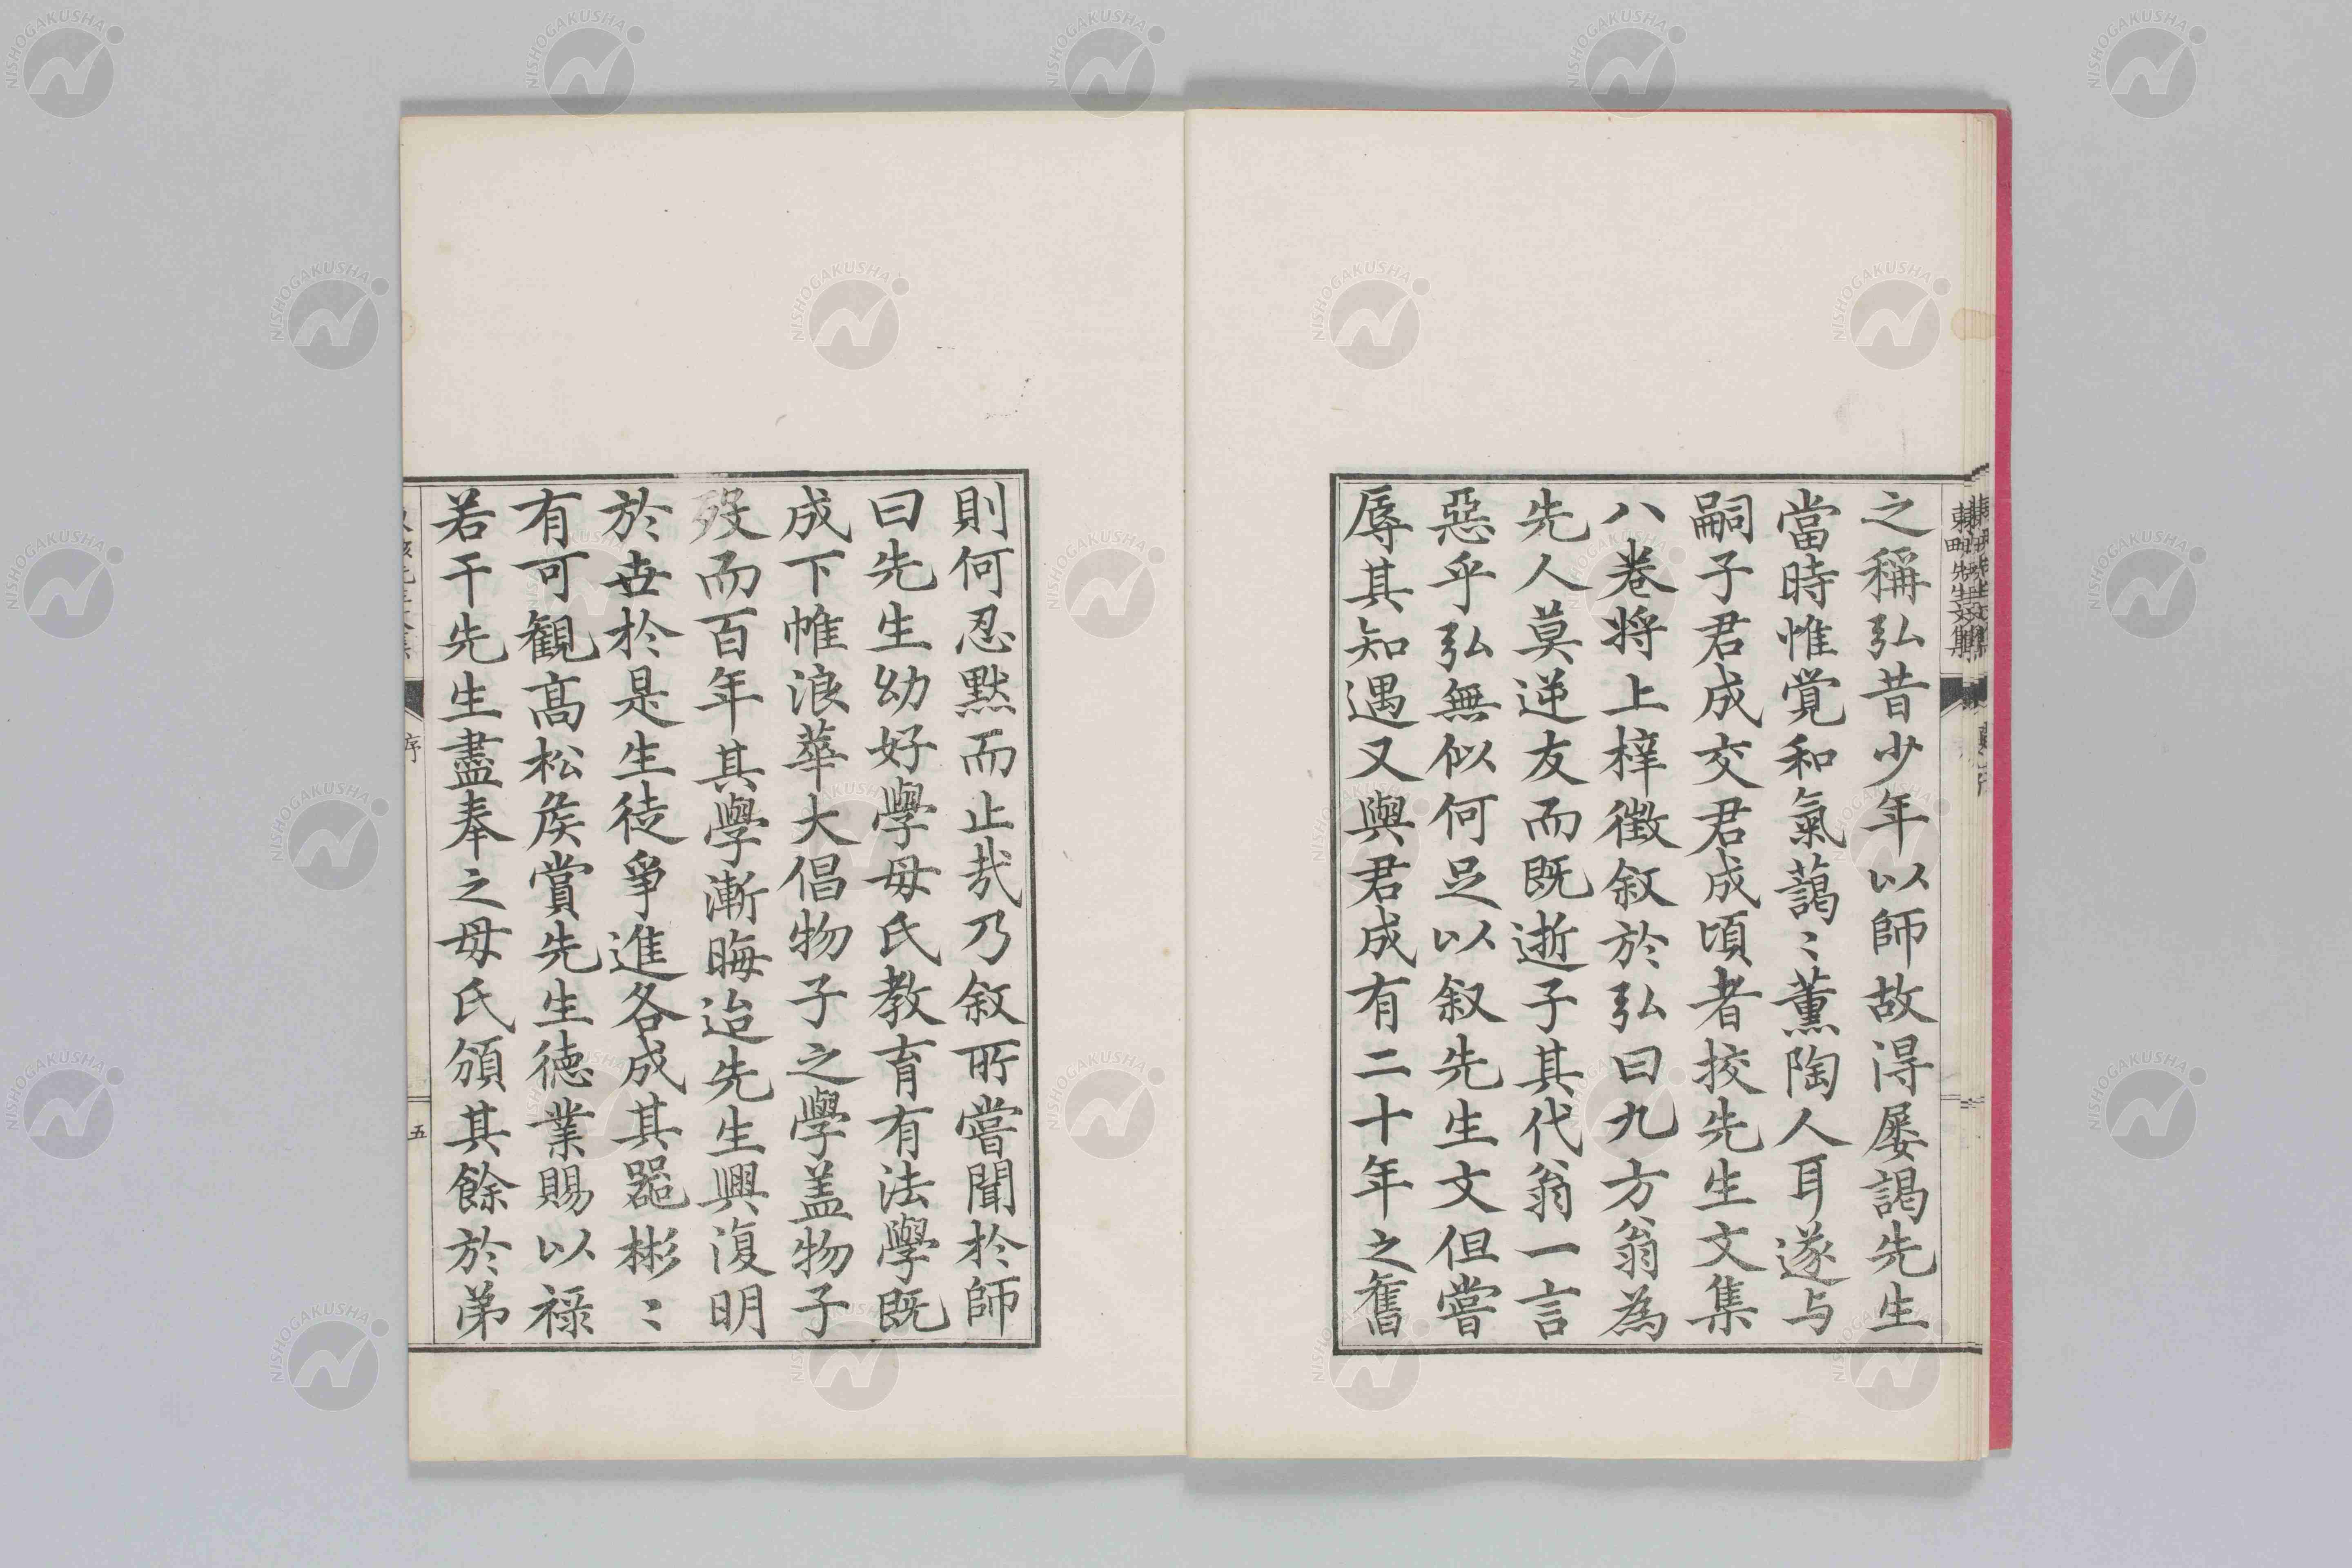 之稱弘昔少年以師故得屡謁先生
當時惟覚和氣藹〻薫陶人耳遂与
嗣子君成交君成頃者挍先生文集
八巻将上梓徴叙於弘曰九方翁為
先人莫逆友而既逝子其代翁一言
惡乎弘無似何足以叙先生文但嘗
辱其知遇又與君成有二十年之舊
則何忍黙而止哉乃叙所嘗聞於師
曰先生幼好學母氏教育有法學既
成下帷浪華大倡物子之學盖物子
歿而百年其學漸晦迨先生興復明
於世於是生徒爭進各成其器彬〻
有可観髙松侯賞先生徳業賜以禄
若干先生盡奉之母氏頒其餘於弟
序
五
NISHOGAKUSHA